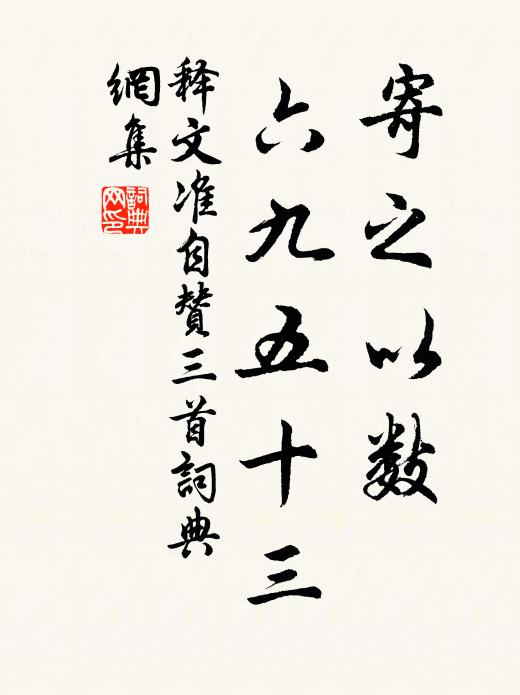 寄之以数
六九五十三
释文准自赞三首詞典
網集
詞典
网印